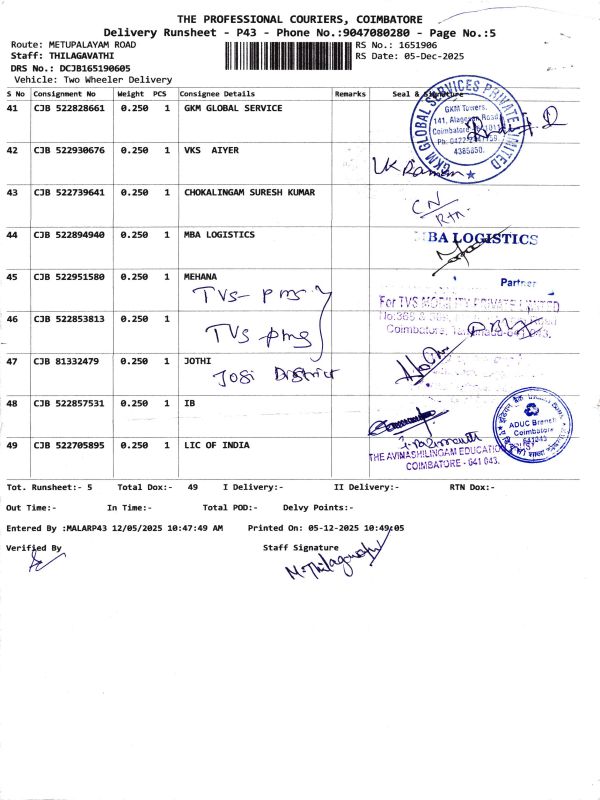 THE PROFESSIONAL COURIERS, COIMBATORE
Delivery Runsheet - P43 - Phone No.:9047080280 - Page No.:5
Route: METUPALAYAM ROAD RS No.: 1651906
Staff: THILAGAVATHI RS Date: 05-Dec-2025
DRS No.: DCJB165190605
Vehicle: Two Wheeler Delivery
S No Consignment No Weight PCS Consignee Details Remarks Seal & Signature
41 CJB 522828661 0.250 1 GKM GLOBAL SERVICE
GKM GLOBAL SERVICES PRIVATE LIMITED
GKM Towers,
141, Alagesan Road
Coimbatore
42 CJB 522930676 0.250 1 VKS AIYER
VK Raman
43 CJB 522739641 0.250 1 CHOKALINGAM SURESH KUMAR
CN
Rtn.
44 CJB 522894940 0.250 1 MBA LOGISTICS
MBA LOGISTICS
45 CJB 522951580 0.250 1 MEHANA
Partner
TVS- pms
For TVS MOBILITY PRIVATE LIMITED
46 CJB 522853813 0.250 1
TVS pmg
Coimbatore,
47 CJB 81332479 0.250 1 JOTHI
Jogi District
48 CJB 522857531 0.250 1 IB
ADUC Branch
Coimbatore
641043
49 CJB 522705895 0.250 1 LIC OF INDIA
THE AVINASHILINGAM EDUCATION
COIMBATORE - 641 043.
Tot. Runsheet:- 5 Total Dox:- 49 I Delivery:- II Delivery:- RTN Dox:-
Out Time:- In Time:- Total POD:- Delvy Points:-
Entered By :MALARP43 12/05/2025 10:47:49 AM Printed On: 05-12-2025 10:49:05
Verified By Staff Signature
M.Thilagavathi